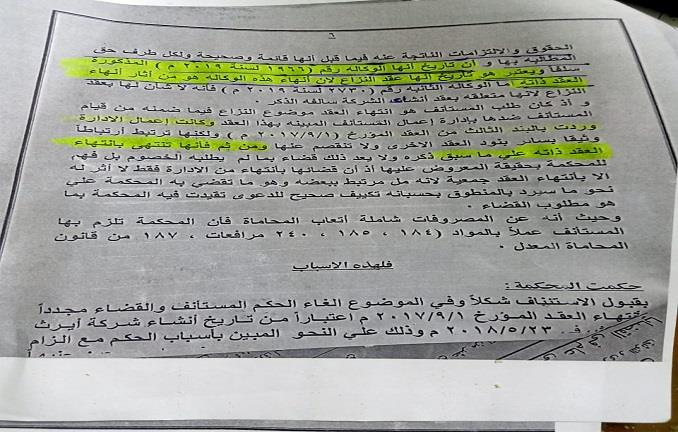 ٦
الحقوق والالتزامات الناتجة عنه فيما قبل انها قائمة وصحيحة ولكل طرف حق
المطالبه بها و أن تاريخ أنها الوكاله رقم (١٩٦٦ لسنة ٢٠١٩ م) المذكورة
سلفا ويعتبر هو تاريخ أنها عقد النزاع لان أنهاء هذه الوكاله هو من أثار أنهاء
العقد ذاته أما الوكاله الثانيه رقم (٢٧٣٠ لسنة ٢٠١٩ م) فأنه لا شأن لها بعقد
النزاع لانها متعلقه بعقد أنشاء الشركة سالفه الذكر .
و أذ كان طلب المستأنف هو انتهاء العقد موضوع النزاع فيما ضمنه من قيام
المستأنف ضدها بإدارة إعمال المستأنف المبينه بهذا العقد وكانت إعمال الادارة
وردت بالبند الثالث من العقد المؤرخ (٢٠١٧/٩/١ م) ولكنها ترتبط أرتباطاً
وثيقا بسائر بنود العقد الاخرى ولا تنفصم عنها ومن ثم فأنها تنتهي بانتهاء
العقد ذاته علي ما سبق ذكره ولا يعد ذلك قضاء بما لم يطلبه الخصوم بل فهم
للمحكمة بحقيقة المعروض عليها أذ أن قضائها بأنتهاء من الادارة فقط لا أثر له
الا بأنتهاء العقد جمعية لانه مل مرتبط ببعضه وهو ما تقضي به المحكمة علي
نحو ما سيرد بالمنطوق بحسبانه تكييف صحيح للدعوى تقيدت فيه المحكمة بما
هو مطلوب القضاء .
وحيث أنه عن المصروفات شاملة أتعاب المحاماة فأن المحكمة تلزم بها
المستأنف عملاً بالمواد (١٨٤ ، ١٨٥ ، ٢٤٠ مرافعات ، ١٨٧ من قانون
المحاماة المعدل .
فلهذه الاسباب
حكمت المحكمة :
بقبول الاستئناف شكلاً وفي الموضوع الغاء الحكم المستأنف والقضاء مجدداً
العقد المؤرخ ٢٠١٧/٩/١ م إعتباراً من تاريخ أنشاء شركة أيرث
٢٠١٨/٥/٢٣ م وذلك علي النحو المبين بأسباب الحكم مع الزام